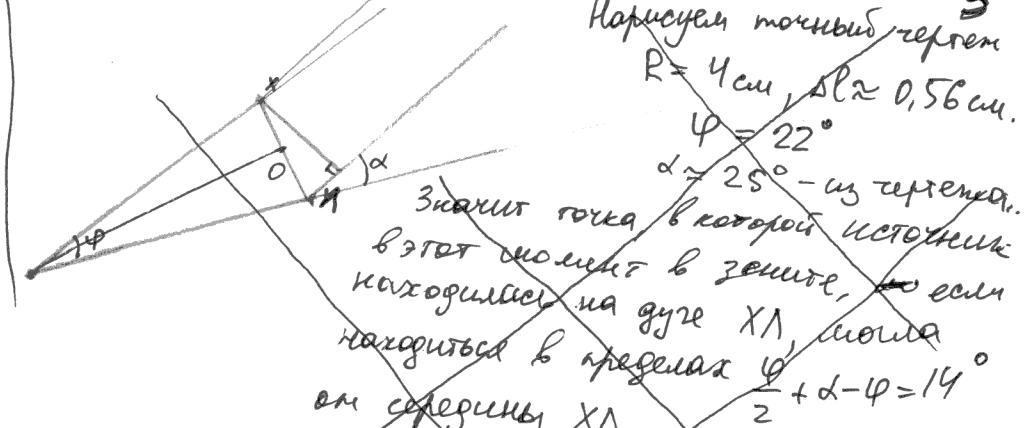 Нарисуем точный чертеж
R = 4 см, Δl ≈ 0,56 см.
φ = 22°
α ≈ 25° - из чертежа.
Значит точка в которой источник
в этот момент в зените, если
находилась на дуге ХЛ, могла
находиться в пределах φ/2 + α - φ = 14°
от середины ХЛ
Х
О
Л
α
φ